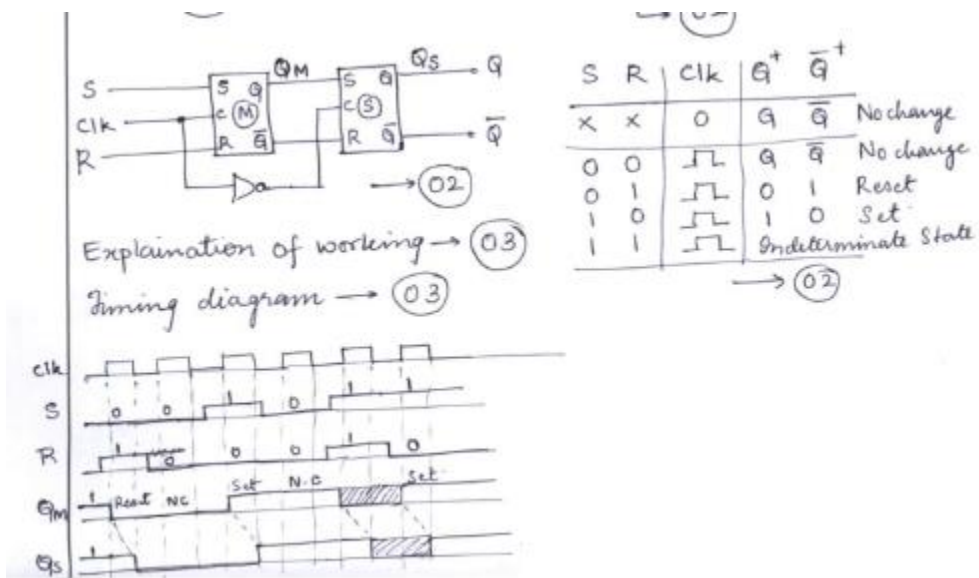 QM QS Q
S S Q S Q
Clk C M C S
R R Q̅ R Q̅ Q̅
→ 02
Explaination of working → 03
Timing diagram → 03
S R Clk Q⁺ Q̅⁺
× × 0 Q Q̅ No change
0 0 Q Q̅ No change
0 1 0 1 Reset
1 0 1 0 Set
1 1 Indeterminate State
→ 02
Clk
S 0 0 1 0 1 1
R 1 0 0 0 1 0
Qm 1 Reset NC Set N.C Set
Qs 1